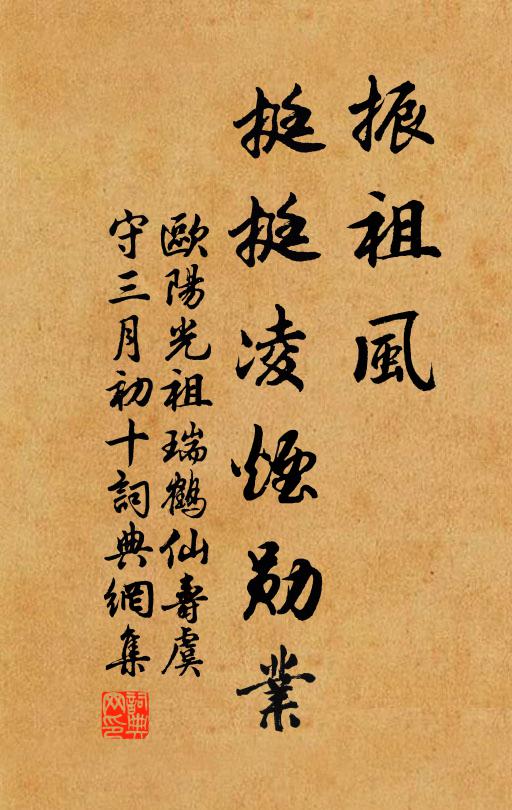 振祖風
挺挺凌煙勛業
歐陽光祖瑞鶴仙壽虞
守三月初十詞典網集
詞典网印